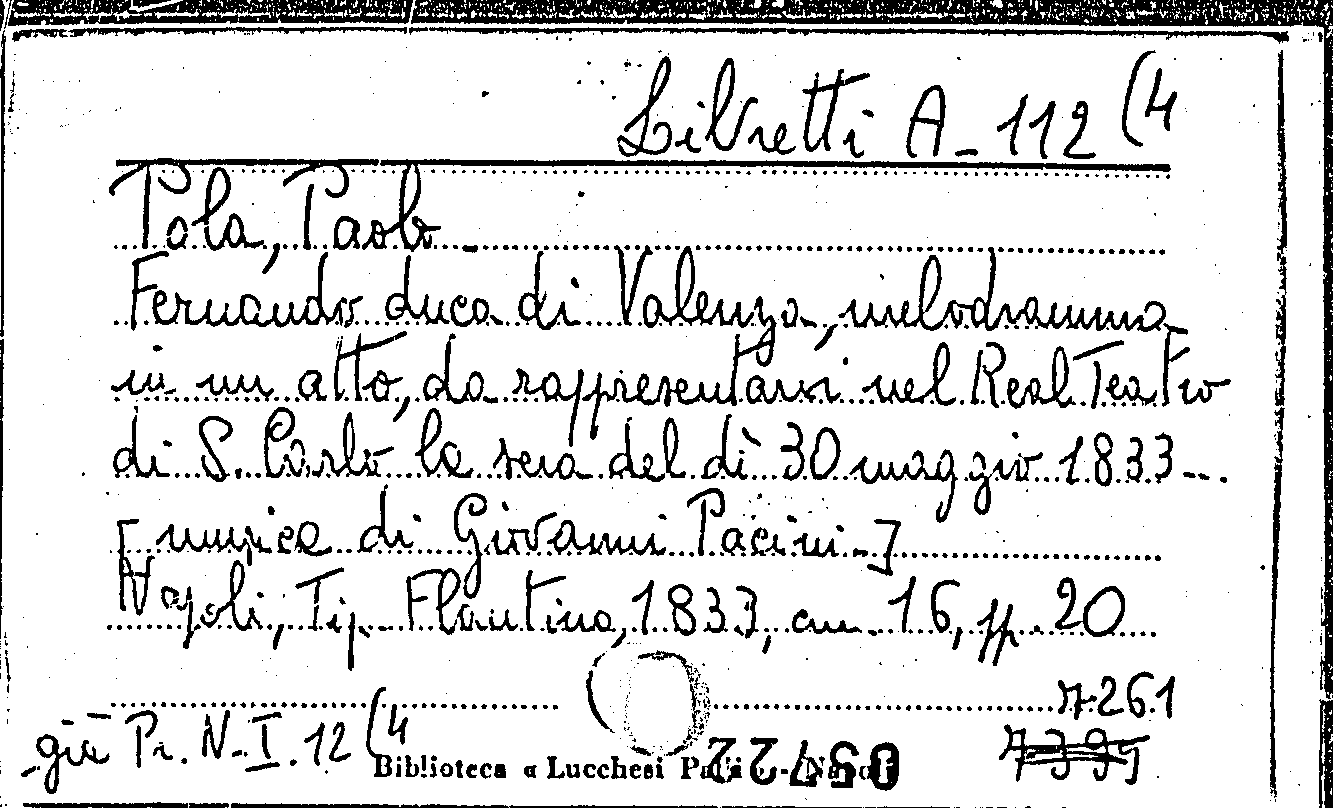 Libretti A-112 (4
Pola, Paolo -
Fernando duca di Valenza, melodramma
in un atto, da rappresentarsi nel Real Teatro
di S. Carlo la sera del dì 30 maggio 1833-.
[musica di Giovanni Pacini-]
Napoli, Tip. Flautina, 1833, cm. 16, pp. 20
7261
già Pr. N-I.12 (4
7399
Biblioteca « Lucchesi Palli » - Napoli
05722